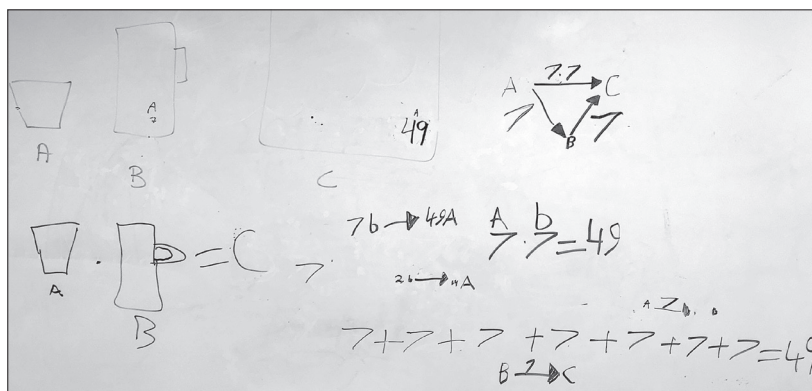 A
7
A
49
A
B
C
A 7.7 C
7 B 7
A . B = C
7
7b → 49A
A b
7 . 7 = 49
2b → 14A
7+7+7+7+7+7+7=49
B 7→ C